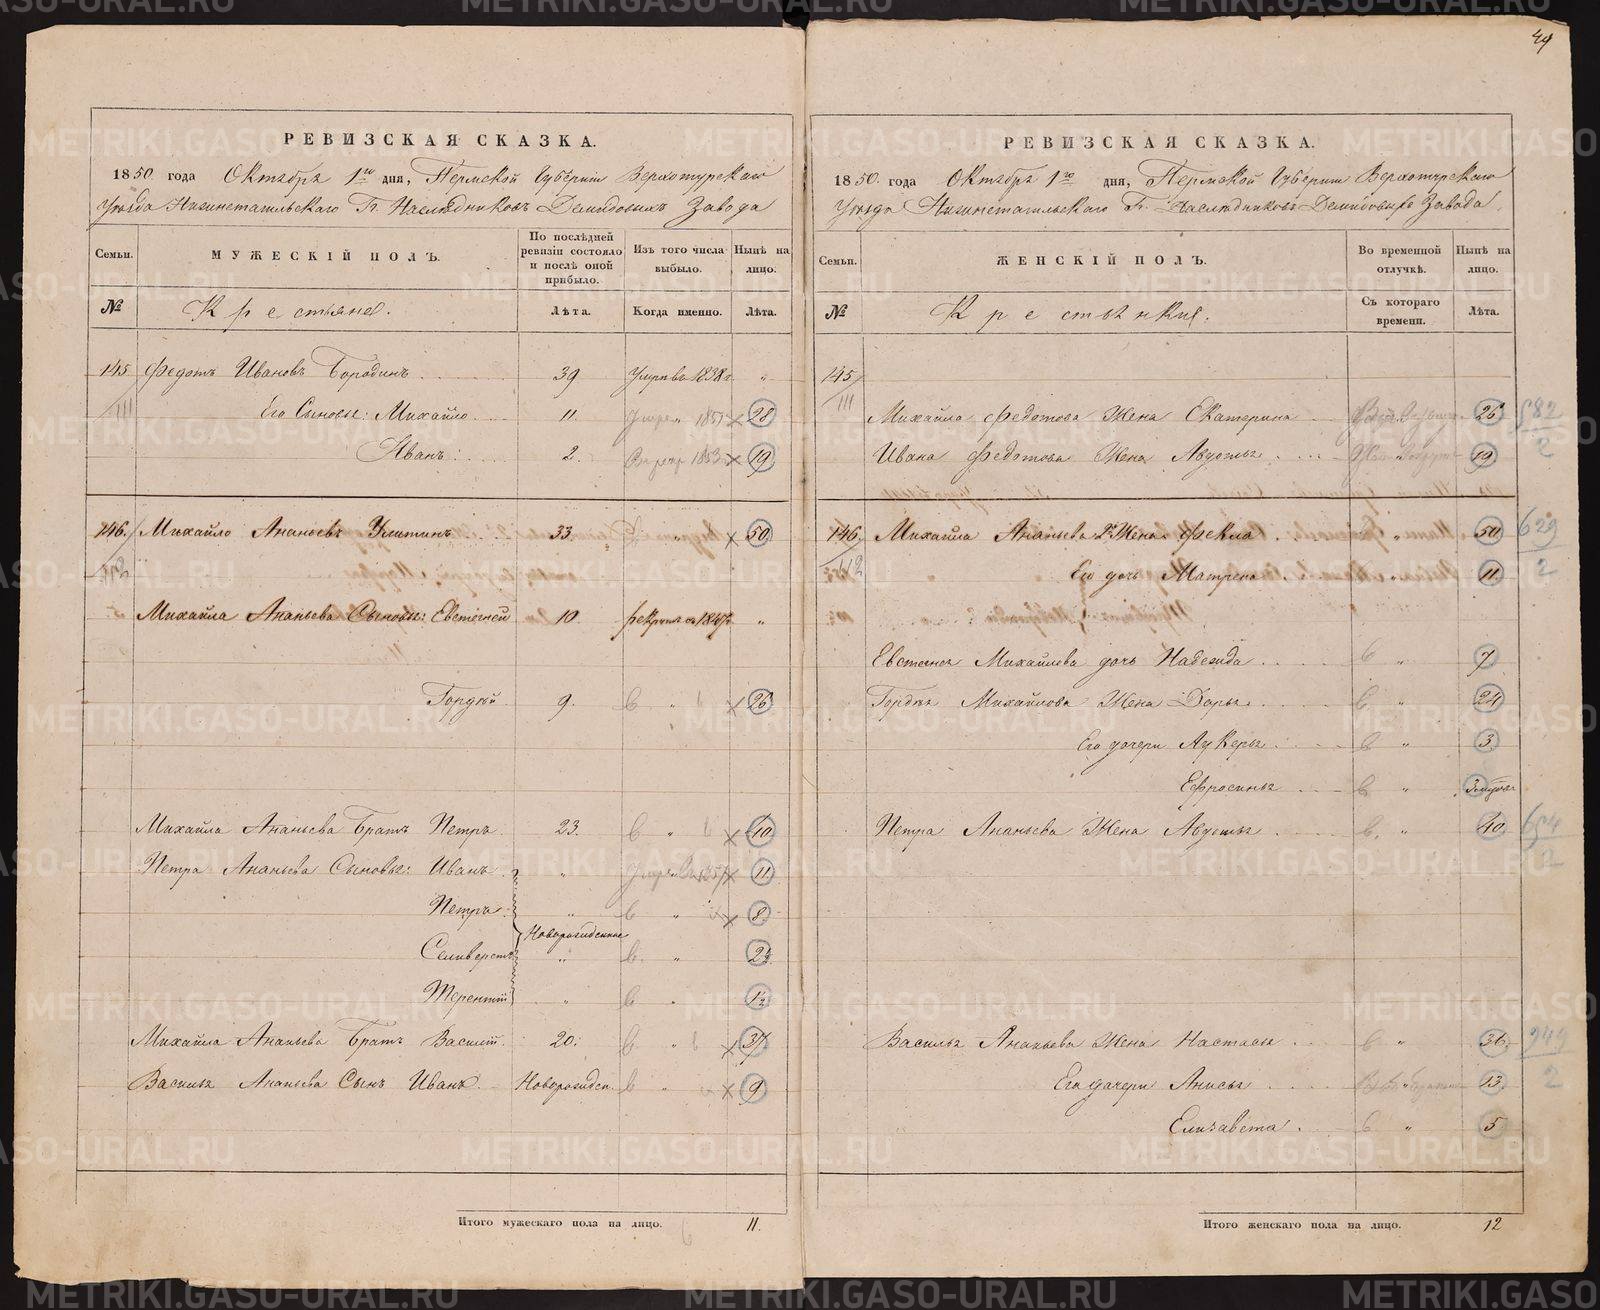 49
РЕВИЗСКАЯ СКАЗКА.
1850 года Октября 1го дня, Пермской Губерніи Верхотурскаго
Уѣзда Нижнетагильскаго Гг. Наслѣдниковъ Демидовыхъ Завода
Семьи.
МУЖЕСКІЙ ПОЛЪ.
По послѣдней ревизіи состояло и послѣ оной прибыло.
Изъ того числа выбыло.
Нынѣ на лицо.
№
Крестьяне.
Лѣта.
Когда именно.
Лѣта.
145 Федотъ Ивановъ Бородинъ 39 Умре въ 1838 г. "
111 Его Сыновья: Михайло 11. 1851 28
Иванъ: 2. 1853 19
146. Михайло Ананьевъ 33. " 50
112
Михайла Ананьева Сыновья: Евстигней 10. рекрутъ въ 1847 "
Гордѣй 9. " 26
Михайла Ананьева Братъ Петръ 23. " 40
Петра Ананьева Сыновья: Иванъ " 11
Петръ " " 8
Новорожденные
Селиверстъ " " 2½
Терентій " " 1½
Михайла Ананьева Братъ Василій 20. " 37
Василья Ананьева Сынъ Иванъ Новорожден. " 9
Итого мужескаго пола на лицо. 11.
РЕВИЗСКАЯ СКАЗКА.
1850 года Октября 1го дня, Пермской Губерніи Верхотурскаго
Уѣзда Нижнетагильскаго Гг. Наслѣдниковъ Демидовыхъ Завода
Семьи.
ЖЕНСКІЙ ПОЛЪ.
Во временной отлучкѣ.
Нынѣ на лицо.
№
Крестьянки.
Съ котораго времени.
Лѣта.
145
111
Михайла Федотова Жена Екатерина 26 582
Ивана Федотова Жена Авдотья 19 2
146 Михайла Ананьева 2я Жена Фекла " 50 629
112 Его дочь Матрена " 11 2
Евстигнея Михайлова дочь Надежда " 7
Гордѣя Михайлова Жена Дарья " 24
Его дочери Лукерья " 3
Ефросинья "
Петра Ананьева Жена Авдотья " 40 654
2
Василья Ананьева Жена Настасья " 36 949
Его дочери Анисья 13 2
Елизавета " 5
Итого женскаго пола на лицо. 12
METRIKI.GASO-URAL.RU